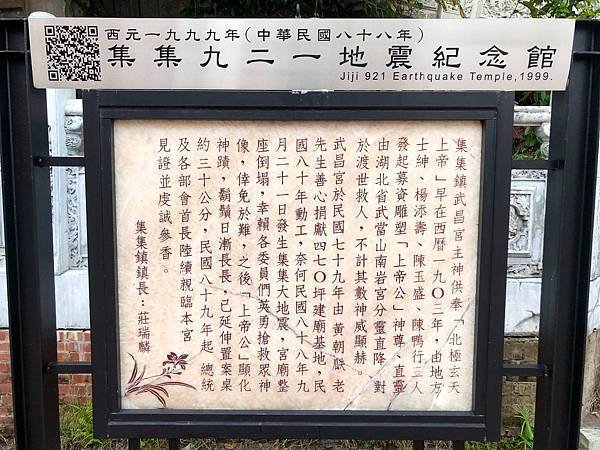 西元一九九九年(中華民國八十八年)
集集九二一地震紀念館
Jiji 921 Earthquake Temple,1999.
集集鎮武昌宮主神供奉「北極玄天
上帝」早在西曆一九〇三年，由地方
士紳、楊添壽、陳玉盛、陳鴨行三人
發起募資雕塑「上帝公」神尊、直靈
由湖北省武當山南岩宮分靈直降，對
於渡世救人，不計其數神威顯赫。
武昌宮於民國七十九年由 黃朝 老
先生善心捐獻四七〇坪建廟基地，民
國八十年動工，奈何民國八十八年九
月二十一日發生集集大地震，宮廟整
座倒塌，幸賴各委員們英勇搶救眾神
像，倖免於難，之後「上帝公」顯化
神蹟，鬍鬚日漸長長，已延伸置案桌
約三十公分，民國八十九年起 總統
及各部會首長陸續親臨本宮
見證並虔誠參香。
集集鎮鎮長：莊瑞麟